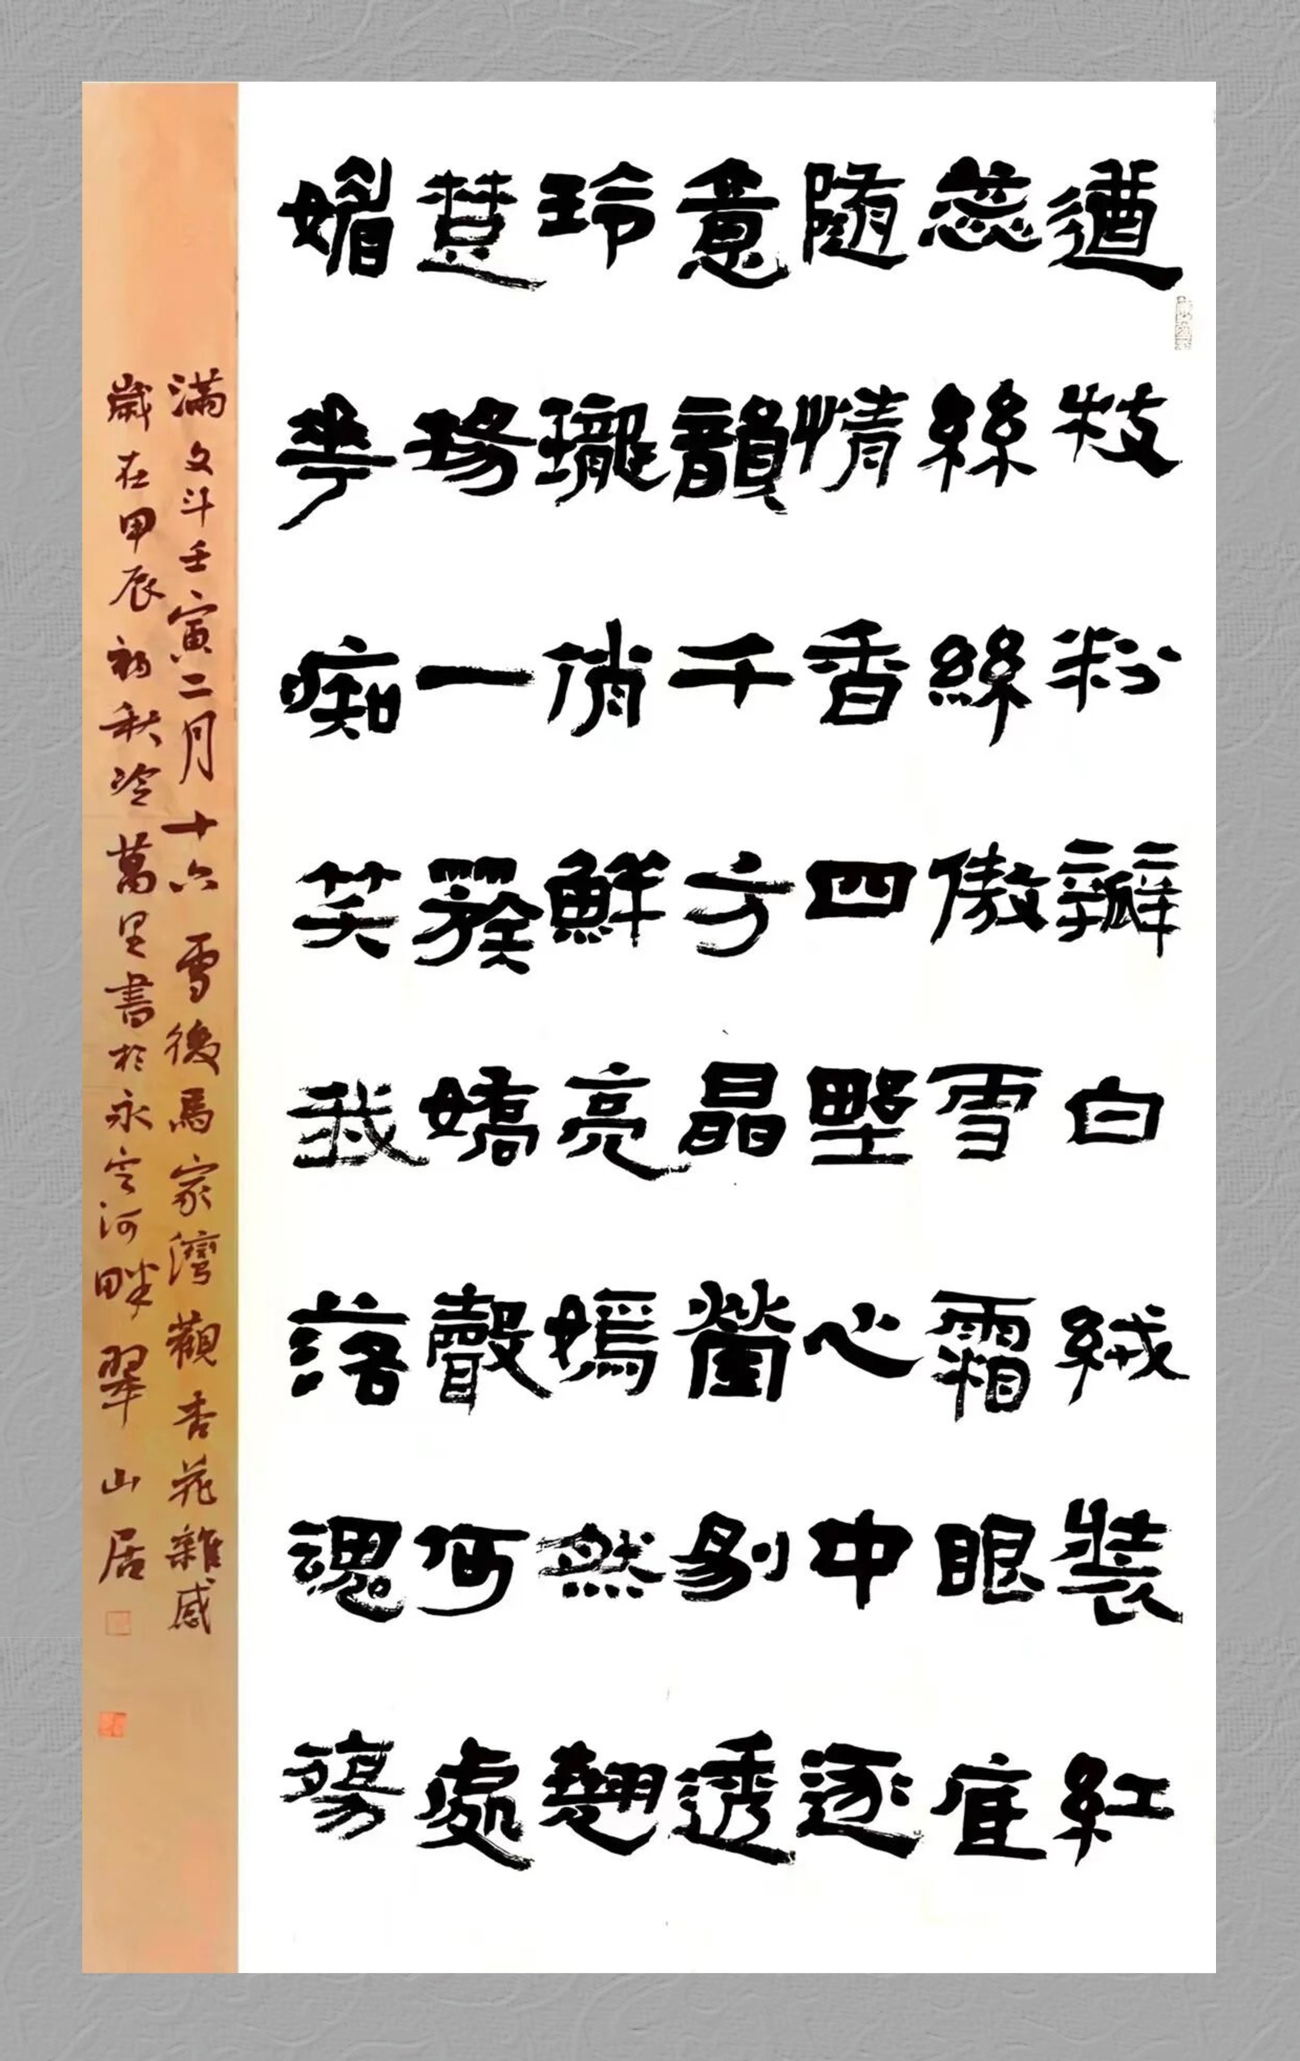 遒枝粉瓣白絨裝紅
蕊絲絲傲雪霜眼底
隨情香四野心中逐
意韻千方晶瑩剔透
玲瓏俏鮮亮嫣然翹
楚一嬌聲何處
媚華痴笑我落魂殤
滿文斗壬寅二月十六雪後馬家灣觀杏花雜感
歲在甲辰初秋冷萬里書於永定河畔翠山居